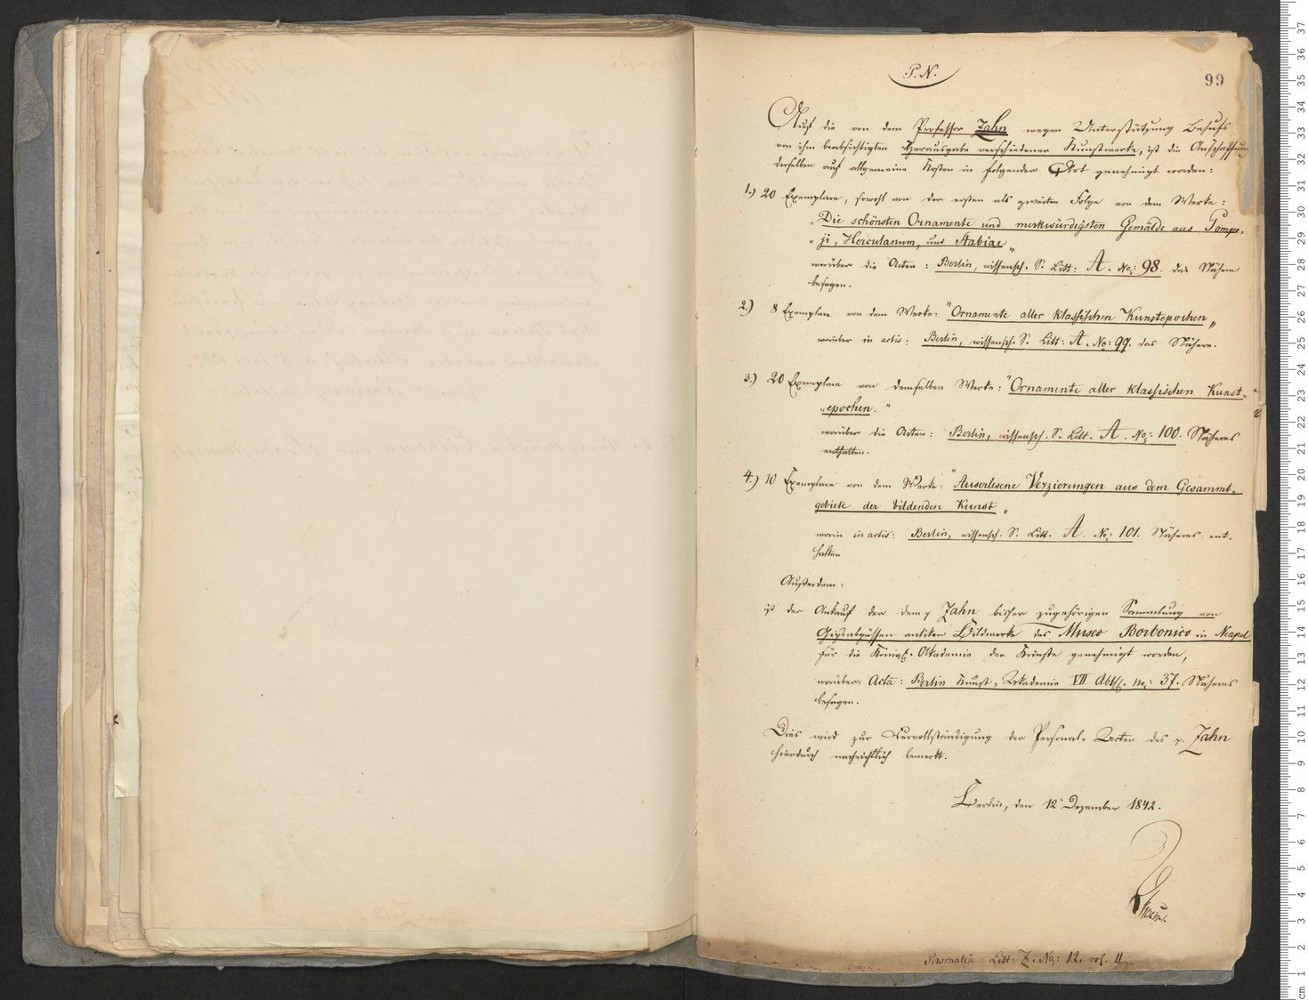 P. N.
99
Auf die von dem Professor Zahn wegen Unterstützung Behufs
von ihm beabsichtigten Herausgabe verschiedener Kunstwerke, ist die Anschaffung
derselben auf allgemeine Kosten in folgender Art genehmigt worden:
1.) 20 Exemplare, sowohl von der ersten als zweiten Folge von dem Werke:
„Die schönsten Ornamente und merkwürdigsten Gemälde aus Pompe„
„ji, Herculanum, und Stabiae„
worüber die Acten: Berlin, wissensch. S. Litt: A. No: 98. das Nähere
besagen.
2.) 8 Exemplare von dem Werke: "Ornamente aller klassischen Kunstepochen„
worüber in actis: Berlin, wissensch. S. Litt: A. No: 99. das Nähere.
3.) 20 Exemplare von demselben Werke: "Ornamente aller klassischen Kunst„
„epochen."
worüber die Acten: Berlin, wissensch. S. Litt. A. No: 100. Näheres
enthalten.
4.) 10 Exemplare von dem Werke: "Auserlesene Verzierungen aus dem Gesammt„
gebiete der bildenden Kunst„
worin in actis: Berlin, wissensch. S. Litt. A. No: 101. Näheres ent„
halten
Außerdem:
ist der Ankauf der dem p Zahn bisher zugehörigen Sammlung von
Gipsabgüssen antiker Bildwerke des Museo Borbonico in Neapel
für die Königl. Akademie der Künste genehmigt worden,
worüber: Acta: Berlin Kunst-Akademie VII Abth. no: 37. Näheres
besagen.
Dies wird zur Vervollständigung der Personal-Acten des p. Zahn
hierdurch nachrichtlich bemerkt.
Berlin, den 12 Dezember 1842.
Personalia Litt: Z. No: 12. vol. II